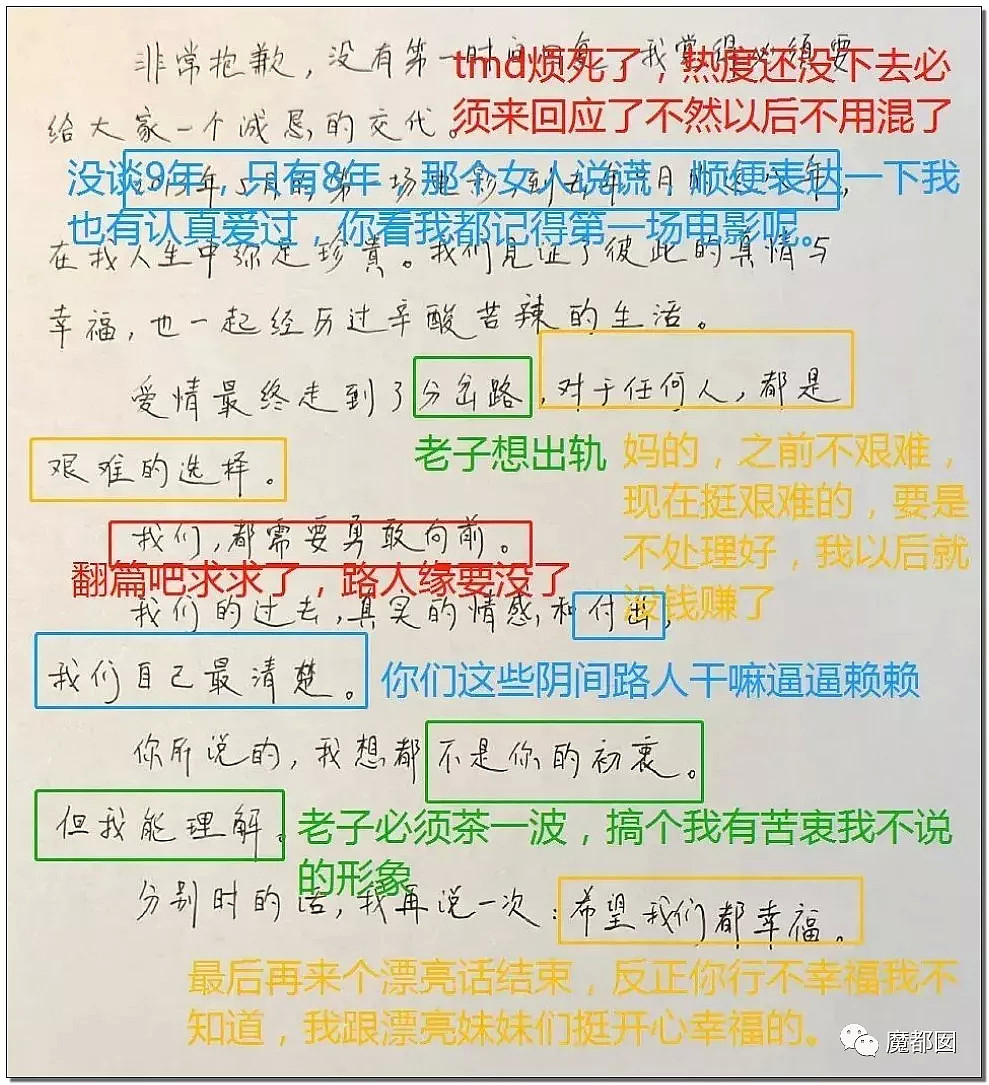 非常抱歉，没有第一时间回复。我觉得必须要
tmd烦死了，热度还没下去必
须来回应了不然以后不用混了
给大家一个诚恳的交代。
年5月的第一场电影，到去年
没谈9年，只有8年，那个女人说谎，顺便表达一下我
也有认真爱过，你看我都记得第一场电影呢。
在我人生中弥足珍贵。我们见证了彼此的真情与
幸福，也一起经历过辛酸苦辣的生活。
爱情最终走到了分岔路，对于任何人，都是
老子想出轨
艰难的选择。
妈的，之前不艰难，
现在挺艰难的，要是
不处理好，我以后就
没钱赚了
我们，都需要勇敢向前。
翻篇吧求求了，路人缘要没了
我们的过去，真实的情感和付出，
我们自己最清楚。
你们这些阴间路人干嘛逼逼赖赖
你所说的，我想都不是你的初衷。
但我能理解。
老子必须茶一波，搞个我有苦衷我不说
的形象
分别时的话，我再说一次：希望我们都幸福。
最后再来个漂亮话结束，反正你行不幸福我不
知道，我跟漂亮妹妹们挺开心幸福的。
魔都囡